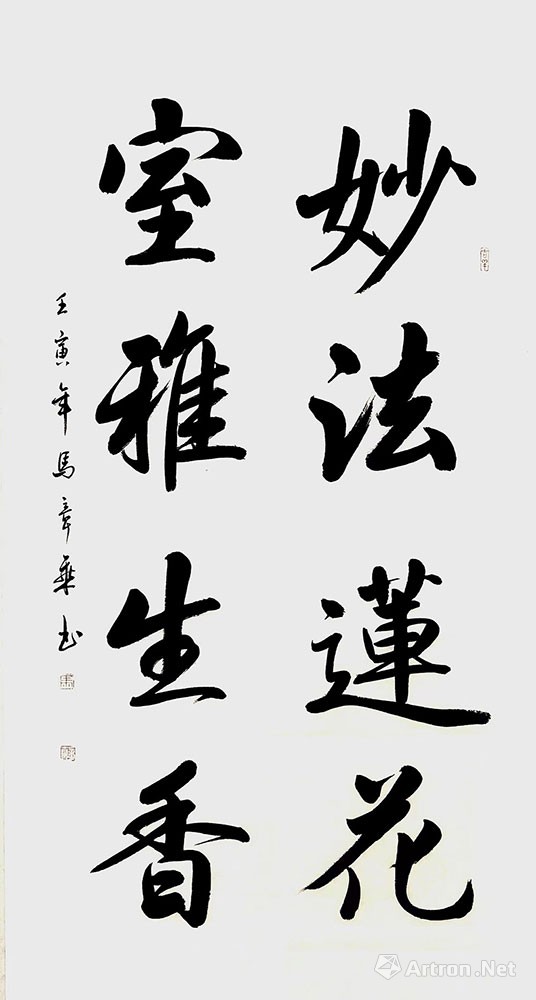 妙法蓮花
室雅生香
壬寅年馬章乘书
Artron.Net